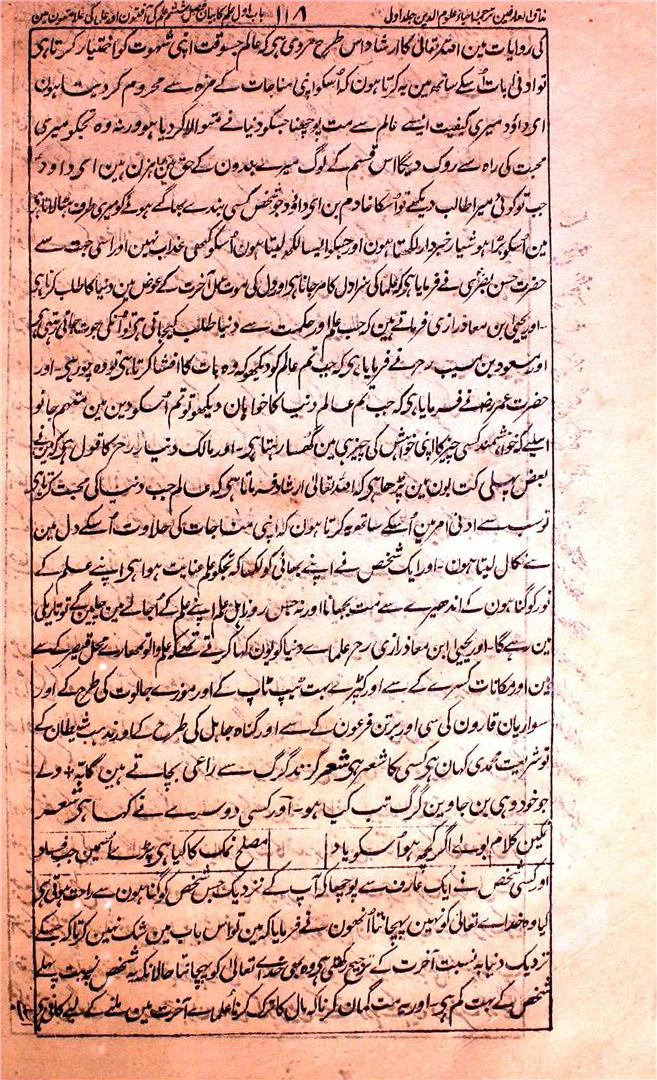 مذاق العارفین ترجمۂ احیاء علوم الدین جلد اول ۱۱۸ باب اول علم کا بیان فصل ششم علم کی آفتون اور علما کی علامتون مین
کی روایات مین اللہ تعالیٰ کا ارشاد اس طرح مروی ہی کہ عالم جسوقت اپنی شہوت کو اختیار کرتا ہی
تو ادنی بات اُسکے ساتھ مین یہ کرتا ہون کہ اُسکو اپنی مناجات کے مزہ سے محروم کر دیتا ہون
ای داؤد میری کیفیت ایسے عالم سے مت پوچھنا جسکو دنیا نے متوالا کر دیا ہو ورنہ وہ تجکو میری
محبت کی راہ سے روک دیگا اس قسم کے لوگ میرے بندون کے حق مین رہزن ہین ای داود
جب تو کوئی میرا طالب دیکھے تو اُسکا خادم بن ای داؤد جو شخص کسی بندے بھاگے ہوئے کو میری طرف لاتا ہی
مین اُسکو بڑا ہوشیار خبردار لکھتا ہون اور جسکو ایسا لکھ لیتا ہون اُسکو کبھی عذاب نہین اور اسی جہت سے
حضرت حسن بصری نے فرمایا ہی کہ علما کی سزا دل کا مر جانا ہی اور دل کی موت عمل آخرت کے عوض مین دنیا کا طلب کرنا ہی
۔اور یحییٰ ابن معاذ رازی فرماتے ہین کہ جب علم اور حکمت سے دنیا طلب کیجاتی ہی تو اُنکی جاتی رہتی ہی
اور سعید بن مسیب رح نے فرمایا ہی کہ جب تم عالم کو دیکھو کہ وہ بات کا افشا کرتا ہی تو وہ چور ہی۔ اور
حضرت عمر رضہ نے فرمایا ہی کہ جب تم عالم دنیا کا خواہان دیکھو تو تم اُسکو دین مین متہم جانو
اسلیے کہ خواہشمند کسی چیز کا اپنی خواہش کی چیز ہی مین گھسا رہتا ہی۔ اور مالک دینار رح کا قول ہی کہ مین نے
بعض پہلی کتابون مین پڑھا ہی کہ اللہ تعالیٰ ارشاد فرماتا ہی کہ عالم جب دنیا کی محبت کرتا ہی
تو سب سے ادنی امر مین اُسکے ساتھ یہ کرتا ہون کہ اپنی مناجات کی حلاوت اُسکے دل مین
سے نکال لیتا ہون۔ اور ایک شخص نے اپنے بھائی کو لکھا کہ تجکو علم عنایت ہوا ہی اپنے علم کے
نور کو گناہون کے اندھیرے سے مت بجھانا ورنہ جس روز اہل علم اپنے علم کے اُجالے مین چلین گے تو تاریکی
مین رہے گا۔ اور یحییٰ ابن معاذ رازی رح علماے دنیا کو یون کہا کرتے تھے کہ علم والو تمھارے محل قیصر کے سے
ہین اور مکانات کسرے کے سے اور کپڑے بہت ٹیپ ٹاپ کے اور موزے جالوت کی طرح کے اور
سواریان قارون کی سی اور برتن فرعون کے سے اور گناہ جاہل کی طرح کے اور مذہب شیطان کے
تو شریعت محمدی کہان ہی کسی کا شعر ہی شعر گزند گرگ سے راعی بچاتے ہین گلہ + ولے
جو خود وہی بن جاوین گرگ تب کیا ہو۔ اور کسی دوسرے نے کہا ہی شعر
نمکین کلام بولے اگر کچھ ہو اُسکو یاد | مصلح نمک کا کیا ہی پڑے اُسمین جب فساد
اور کسی شخص نے ایک عارف سے پوچھا کہ آپ کے نزدیک جس شخص کو گناہون سے راحت ہوتی ہی
کیا وہ خداے تعالیٰ کو نہین پہچانتا اُنھون نے فرمایا کہ مین تو اس باب مین شک نہین کرتا کہ جسکے
نزدیک دنیا بہ نسبت آخرت کے ترجیح رکھتی ہی وہ بھی خداے تعالیٰ کو نہین پہچانتا حالانکہ یہ شخص نسبت پہلے
شخص کے بہت کم ہی۔ اور یہ مت گمان کرنا کہ مال کا ترک کرنا علماے آخرت مین ملنے کے لیے کافی ہی